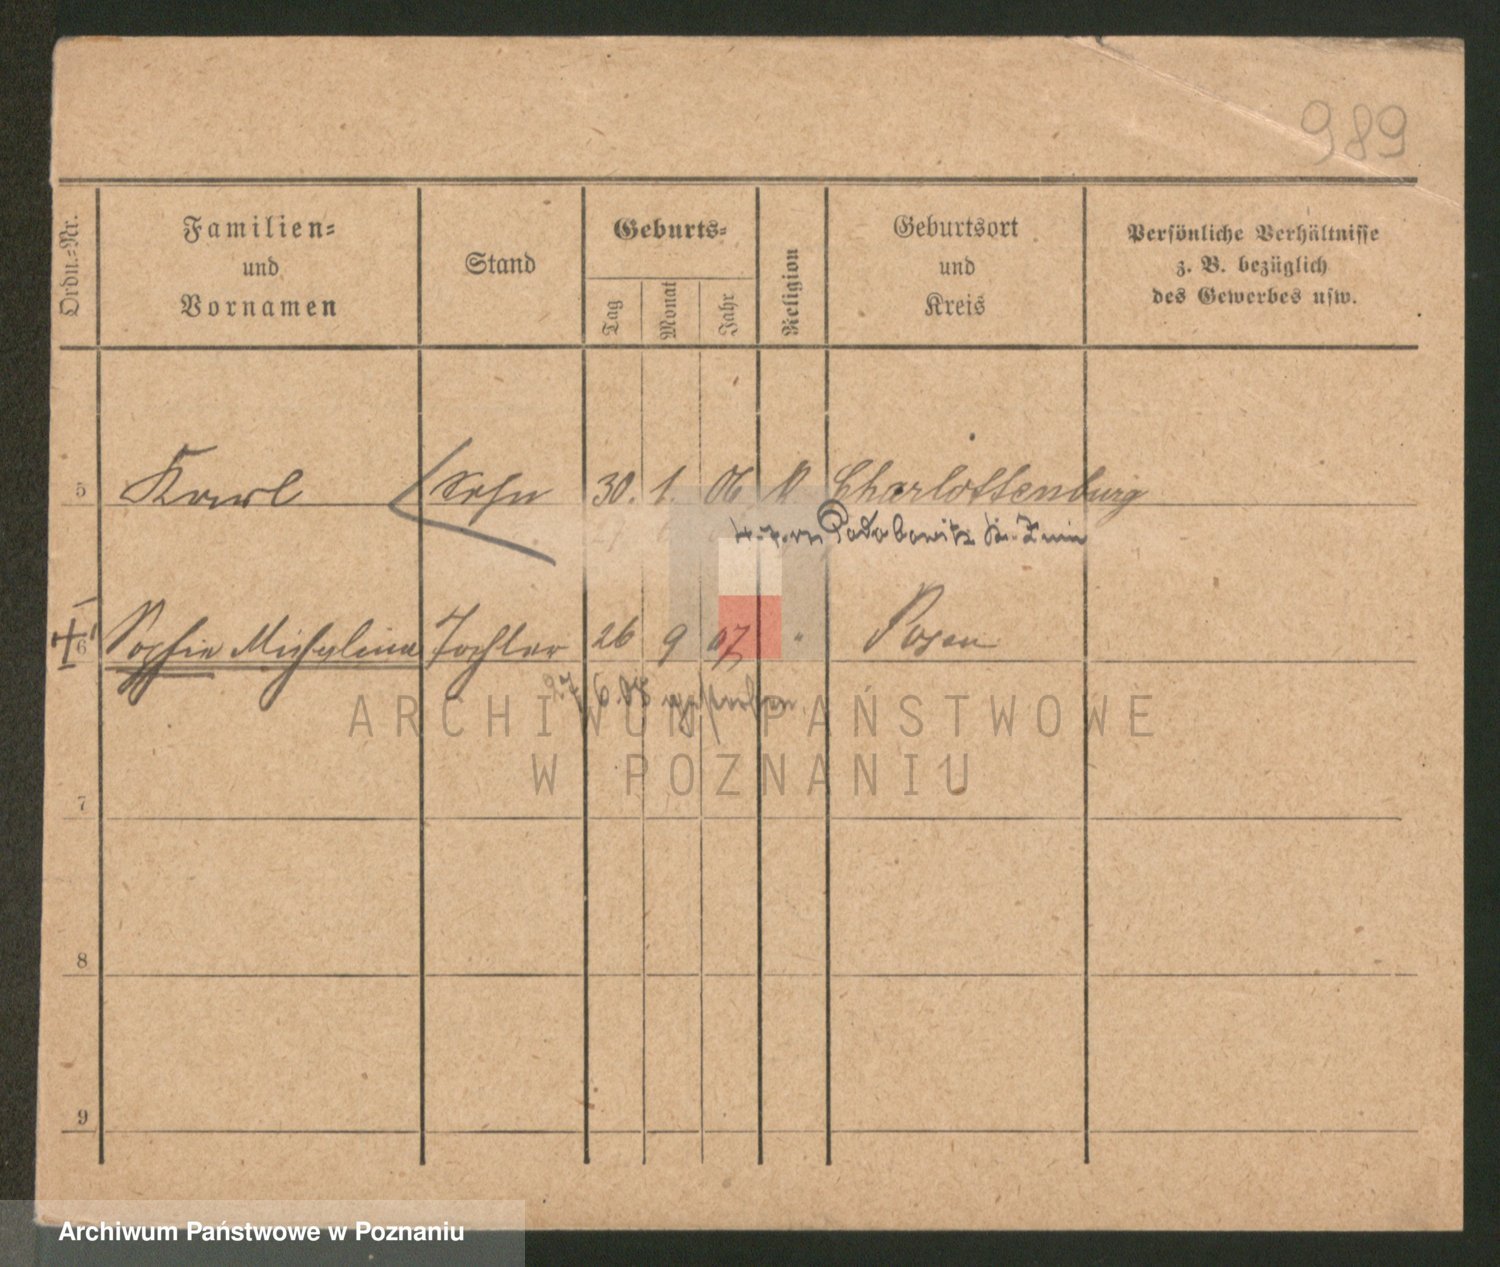 989
Ordn.-Nr.
Familien-
und
Vornamen
Stand
Geburts-
Tag
Monat
Jahr
Religion
Geburtsort
und
Kreis
Persönliche Verhältnisse
z. B. bezüglich
des Gewerbes usw.
5 Karl Sohn 30. 1. 06 Charlottenburg
6 Sophie Michalina Tochter 26 9 07 " Posen
27 6. 08 gestorben
ARCHIWUM PAŃSTWOWE
W POZNANIU
7
8
9
Archiwum Państwowe w Poznaniu